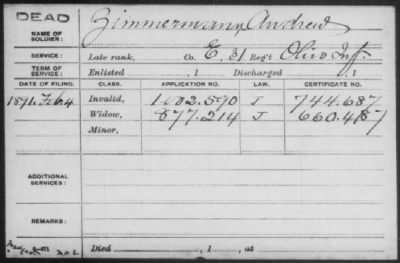 DEAD
NAME OF SOLDIER: Zimmermann, Andrew
SERVICE: Late rank, Co. E, 31 Reg't Ohio Inf.
TERM OF SERVICE: Enlisted , 1 Discharged , 1
DATE OF FILING. CLASS. APPLICATION NO. LAW. CERTIFICATE NO.
1891, Feb. 4 Invalid, 1.082.590 J 744.687
Widow, 877.214 J
Minor,
ADDITIONAL SERVICES:
REMARKS:
Died , 1 , at